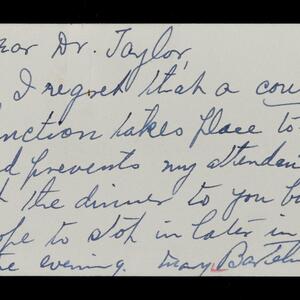 ear Dr. Taylor,
I regret that a cou
nction takes place to
d prevents my attendan
the dinner to you bu
ope to stop in later in
the evening. Mary Bartel